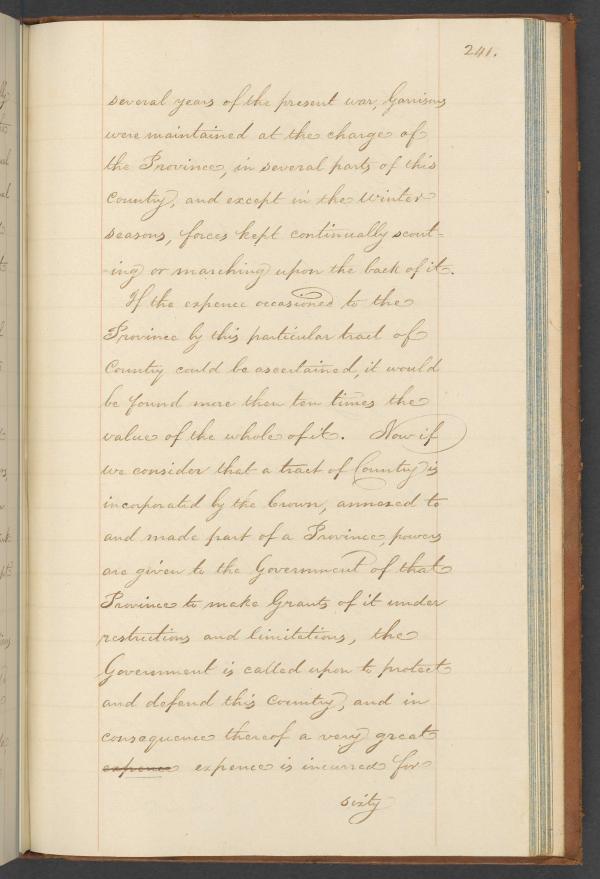 241.
several years of the present war, Garrisons
were maintained at the charge of
the Province, in several parts of this
Country, and except in the winter
seasons, forces kept continually scout-
ing or marching upon the back of it.
If the expence occasioned to the
Province by this particular tract of
Country could be ascertained, it would
be found more then ten times the
value of the whole of it. Now if
we consider that a tract of Country is
incorporated by the Crown, annexed to
and made part of a Province, powers
are given to the Government of that
Province to make Grants of it under
restrictions and limitations, the
Government is called upon to protect
and defend this Country, and in
consequence thereof a very great
expence expence is incurred for
sixty